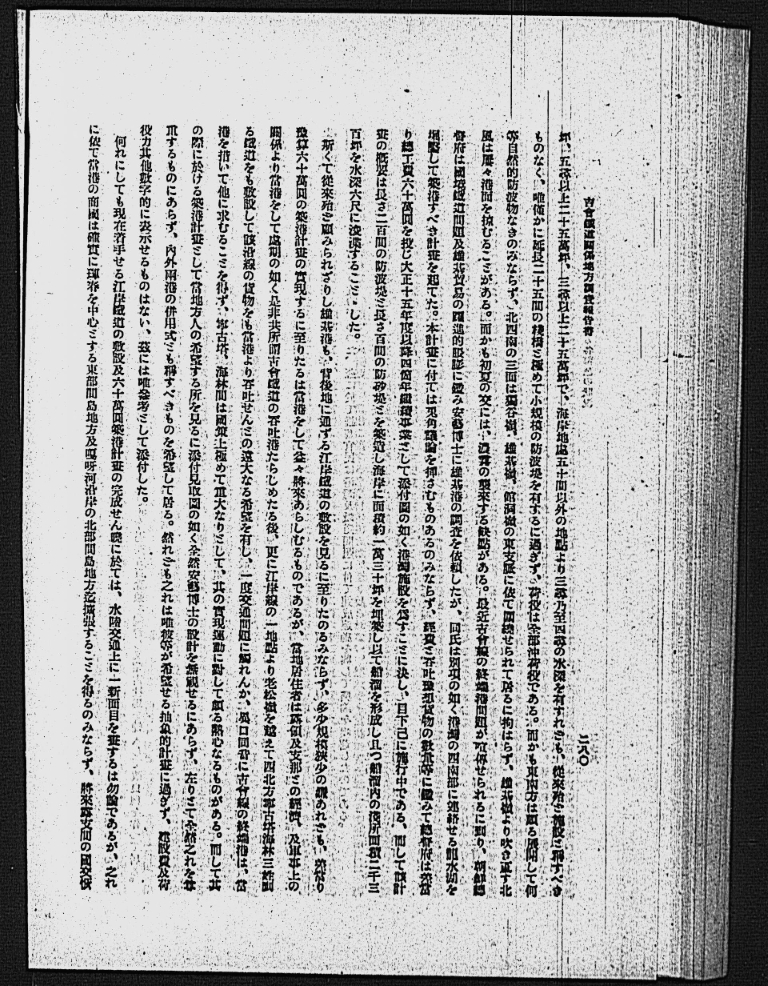 吉會鐵道關係地方調査報告書
二八〇
坪、五尋以上二十五萬坪、三尋以上二十五萬坪で、海岸地處五十間以外の地點より三尋乃至四尋の水深を有すれども、從來殆ど施設と稱すべき
ものなく、唯僅かに延長二十五間の棧橋と極めて小規模の防波堤を有するに過ぎず、荷役は全部沖荷役である。而かも東南方は頗る展開して何
等自然的防波物なきのみならず、北西南の三面は獨谷嶺、雄基嶺、館洞嶺の東支脈に依て圍繞せられて居るに拘はらず、雄基嶺より吹き下す北
風は屢々港面を掠むることがある。而かも初夏の交には、濃霧の襲來する缺點がある。最近吉會線の終端港問題が喧傳せられるに到り、朝鮮總
督府は國境鐵道問題及雄基貿易の躍進的股賑に鑑み安藝博士に雄基港の調査を依賴したが、同氏は別項の如く港灣の西南部に連絡せる龍水湖を
堀鑿して築港すべき計畫を起てた。本計畫に付ては兎角議論を挿さむものあるのみならず、經費と吞吐豫想貨物の數量等に鑑みて總督府は差當
り總工費六十萬圓を投じ大正十五年度以降四箇年繼續事業として添付圖の如く港灣施設を爲すことに決し、目下已に施行中である、而して該計
畫の概要は長さ二百間の防波堤と長さ百間の防砂堤とを築造し海岸に面積約一萬三十坪を埋築し以て船溜を形成し且つ船溜內の港所面積二千三
百坪を水深六尺に浚渫することゝした。
斯くて從來殆ど顧みられざりし雄基港も、背後地に通ずる江岸鐵道の敷設を見るに至りたのみならず、多少規模狹少の嫌あれども、差當り
豫算六十萬圓の築港計畫の實現するに至りたるは當港をして益々將來あらしむるものであるが、當地居住者は露領及支那との經濟、及軍事上の
關係より當港をして處期の如く是非共所謂吉會鐵道の吞吐港たらしめたる後、更に江岸線の一地點より老松嶺を越えて西北方寧古塔海林三姓
る鐵道をも敷設して該沿線の貨物をも當港より吞吐せんとの遠大なる希望を有し、一度交通問題に觸れんか、異口同音に吉會線の終端港は、當
港を措いて他に求むることを得ず、寧古塔、海林間は國策上極めて重大なりとして、其の實現運動に對して頗る熱心なるものがある。而して其
の際に於ける築港計畫として當地方人の希望する所を見るに添付見取圖の如く全然安藝博士の設計を無視せるにあらず、左りとて全然之れを尊
重するものにあらず、內外兩港の併用式とも稱すべきものを希望して居る。然れども之れは唯彼等が希望せる抽象的計畫に過ぎず、建設費及荷
役力其他數字的に表示せるものはない、茲には唯參考として添付した。
何れにしても現在着手せる江岸鐵道の敷設及六十萬圓築港計畫の完成せん曉に於ては、水陸交通上に一新面目を畫するは勿論であるが、之れ
に依て當港の商圈は確實に琿春を中心とする東部間島地方及嘎呀河沿岸の北部間島地方迄擴張することを得るのみならず、將來露支間の國交恢